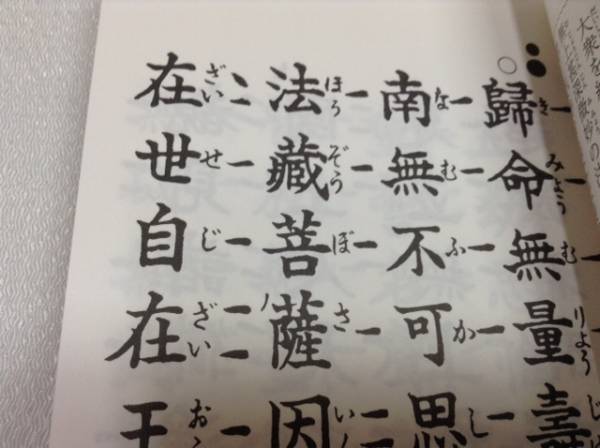 歸命無量壽
きみようむりようじ
南無不可思
なむふかし
法藏菩薩因
ほうぞうぼさい
在世自在王
ざいせじざいお